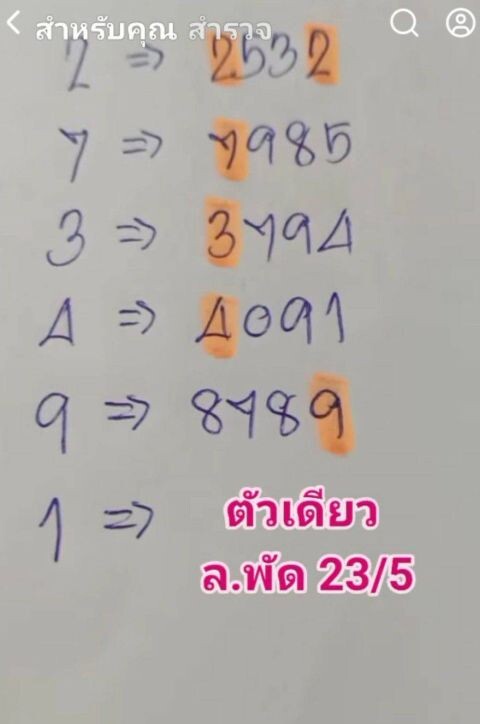 สำหรับคุณ สำรวจ
2 => 2532
7 => 7985
3 => 3794
4 => 4091
9 => 8789
1 =>
ตัวเดียว
ล.พัด 23/5